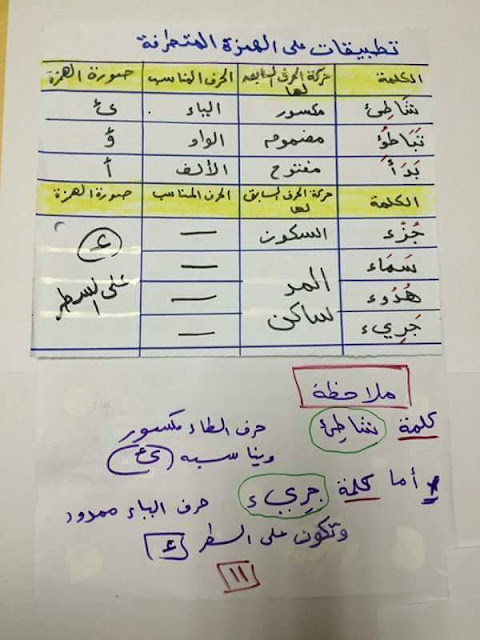 تطبيقات على الهمزة المتطرفة
الكلمة حركة الحرف السابق لها الحرف المناسب صورة الهمزة
شَاطِئ مكسور الياء ئ
تَبَاطُؤ مضموم الواو ؤ
بَدَأَ مفتوح الألف أ
الكلمة حركة الحرف السابق لها الحرف المناسب صورة الهمزة
جُزْء السكون — ء على السطر
سَمَاء المد ساكن —
هُدُوء —
جَرِيء —
ملاحظة
كلمة شاطِئ حرف الطاء مكسور
ويناسبه ئ
أما كلمة جريء حرف الياء ممدود
وتكون على السطر ء
١١